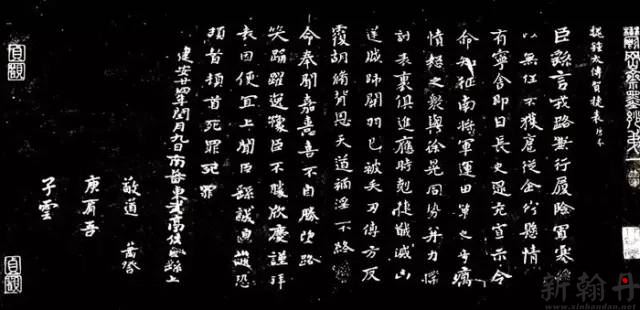 魏鍾太傅賀捷表
臣繇言戎路兼行履險冒寒臣
以無任不獲扈從企佇懸情無
有寧舍即日長史逮充宣示令
命知征南將軍運田單之奇厲
憤怒之眾與徐晃同勢并力撲
討表裏俱進應時剋捷馘滅凶
逆賊帥關羽已被矢刃傅方反
覆胡脩背恩天道禍淫不終
命奉聞嘉憙喜不自勝望路
笑踊躍逸豫臣不勝欣慶謹拜
表因便宜上聞臣繇誠惶誠恐
頓首頓首死罪死罪
建安廿四年閏月九日南蕃東武亭侯臣繇上
敬道
庾肩吾
子雲
貞觀
貞觀
新翰丹
www.xinhandan.net